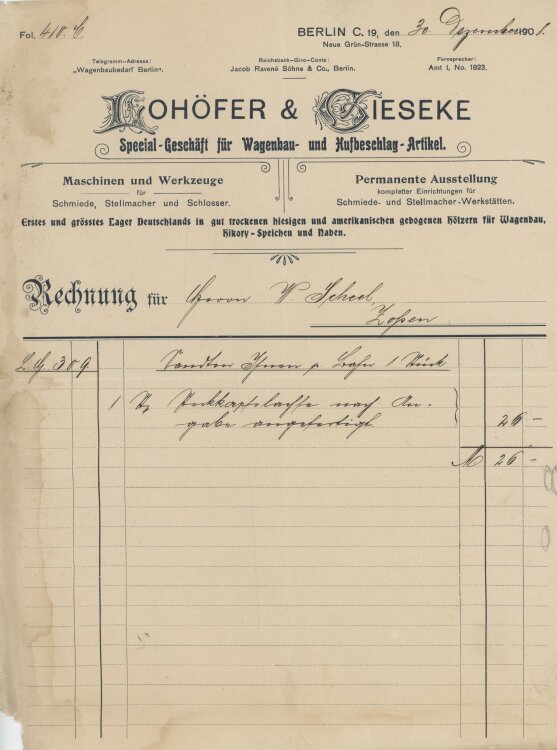 Fol. 410. C.
BERLIN C. 19, den 30 Dezember 1901.
Neue Grün-Strasse 18.
Telegramm-Adresse: Reichsbank-Giro-Conto: Fernsprecher:
„Wagenbaubedarf Berlin“. Jacob Ravené Söhne & Co., Berlin. Amt I, No. 1823.
LOHÖFER & GIESEKE
Special-Geschäft für Wagenbau- und Hufbeschlag-Artikel.
Maschinen und Werkzeuge Permanente Ausstellung
für kompletter Einrichtungen für
Schmiede, Stellmacher und Schlosser. Schmiede- und Stellmacher-Werkstätten.
Erstes und grösstes Lager Deutschlands in gut trockenen hiesigen und amerikanischen gebogenen Hölzern für Wagenbau,
Hikory-Speichen und Naben.
Rechnung für Herrn W. Scheel,
Zossen
L. G 309 Sandten Ihnen p. Bahn 1 Stück
1 Steckkapselachse nach An-
gabe angefertigt 26 –
M 26 –